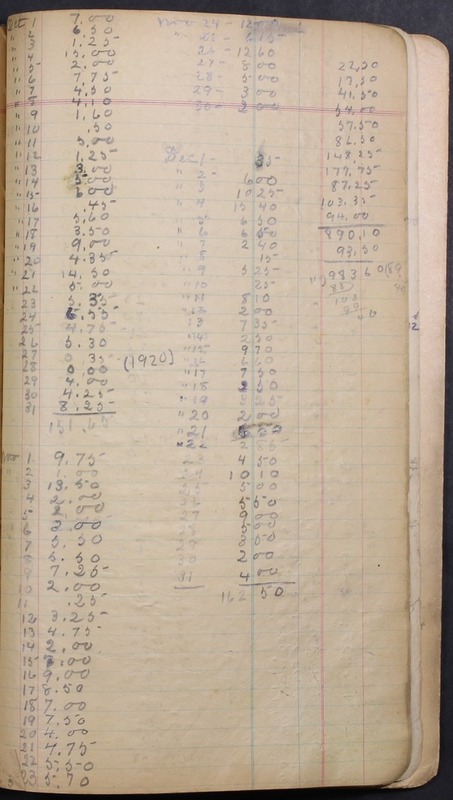 Oct 1 7.00
" 2 6.50
" 3 1.25
" 4 15.00
" 5 2.00
" 6 7.75
" 7 4.50
" 8 4.10
" 9 1.60
" 10 .50
" 11 5.00
" 12 1.25
" 13 3.00
" 14 5.00
" 15 6.00
" 16 .45
" 17 5.60
" 18 3.50
" 19 9.00
" 20 4.35
" 21 14.50
" 22 5.00
23 5.35
24 6.55
25 4.75
26 5.30
27 0.35
28 0.00
29 4.00
30 4.25
31 8.25
151.65
Nov 1 9.75
2 1.00
3 13.50
4 2.00
5 2.00
6 3.00
7 5.50
8 5.50
9 7.25
10 2.00
11 .25
12 3.25
13 4.75
14 2.00
15 3.00
16 9.00
17 8.50
18 7.00
19 7.50
20 4.00
21 4.75
22 5.50
23 5.70
Nov 24 -
" 25 -
26 - 12 60
27 - 8 00
28 - 5 00
29 - 3 00
30 - 2 00
Dec 1 - 35
" 2 - 6 00
" 3 10 25
" 4 15 40
" 5 6 50
" 6 6 50
" 7 2 40
" 8 15
" 9 5 25
" 10 25
" 11 8 10
" 12 2 00
" 13 7 35
" 14 2 50
" 15 9 70
(1920)
" 17 7 50
" 18 2 50
" 19
" 20 2 00
" 21
" 22
4 50
10 10
5 00
5 50
9 00
5 00
2 00
31 4 00
162 50
22,50
17,50
41.50
54.00
57.50
86.50
148.25
177.75
87.25
103.35
94.00
890,10
93,50
983 60